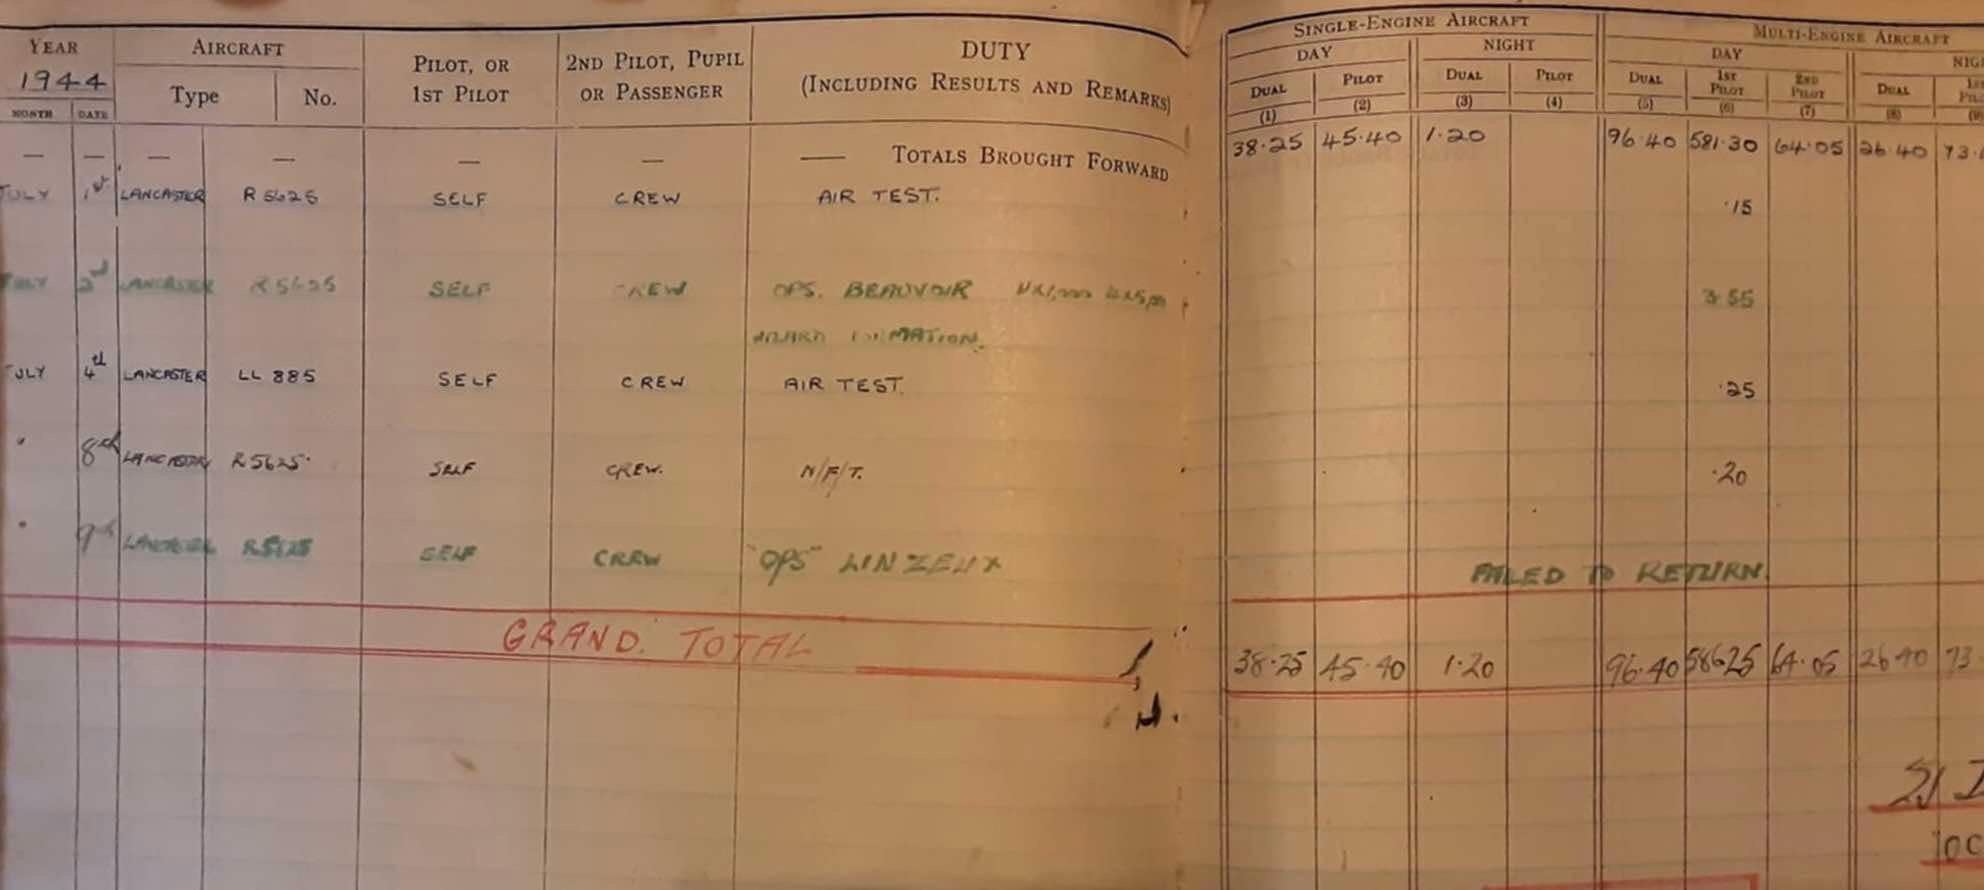 YEAR AIRCRAFT PILOT, OR 1ST PILOT 2ND PILOT, PUPIL OR PASSENGER DUTY (INCLUDING RESULTS AND REMARKS) SINGLE-ENGINE AIRCRAFT MULTI-ENGINE AIRCRAFT
1944 Type No. DAY NIGHT DAY
MONTH DATE DUAL PILOT DUAL PILOT DUAL 1ST PILOT 2ND PILOT DUAL
(1) (2) (3) (4) (5) (6) (7) (8)
— — — — — — — TOTALS BROUGHT FORWARD 38·25 45·40 1·20 96·40 581·30 64·05 26·40 73·
JULY 1st LANCASTER R5625 SELF CREW AIR TEST. ·15
JULY 2nd LANCASTER R5625 SELF CREW OPS. BEAUVOIR 3·55
FORMATION.
JULY 4th LANCASTER LL 885 SELF CREW AIR TEST. ·25
" 8th LANCASTER R5625· SELF CREW. N/F/T. ·20
" 9th LANCASTER R5625 SELF CREW "OPS" LINZEUX FAILED TO RETURN.
GRAND. TOTAL 38·25 45·40 1·20 96·40 586·25 64·05 26·40 73·